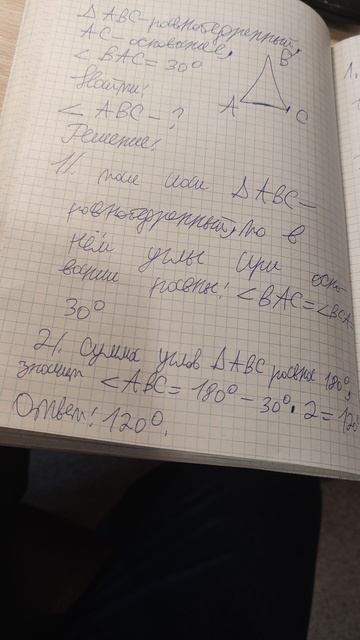 Δ ABC - равнобедренный,
AC - основание,
∠ BAC = 30°
Найти:
∠ ABC - ?
Решение:
B
A
C
1.
1). так как Δ ABC -
равнобедренный, то в
нём углы при осно-
вании равны: ∠BAC = ∠BCA
30°
2). Сумма углов Δ ABC равна 180°,
значит ∠ABC = 180° - 30° · 2 = 120°
Ответ: 120°.